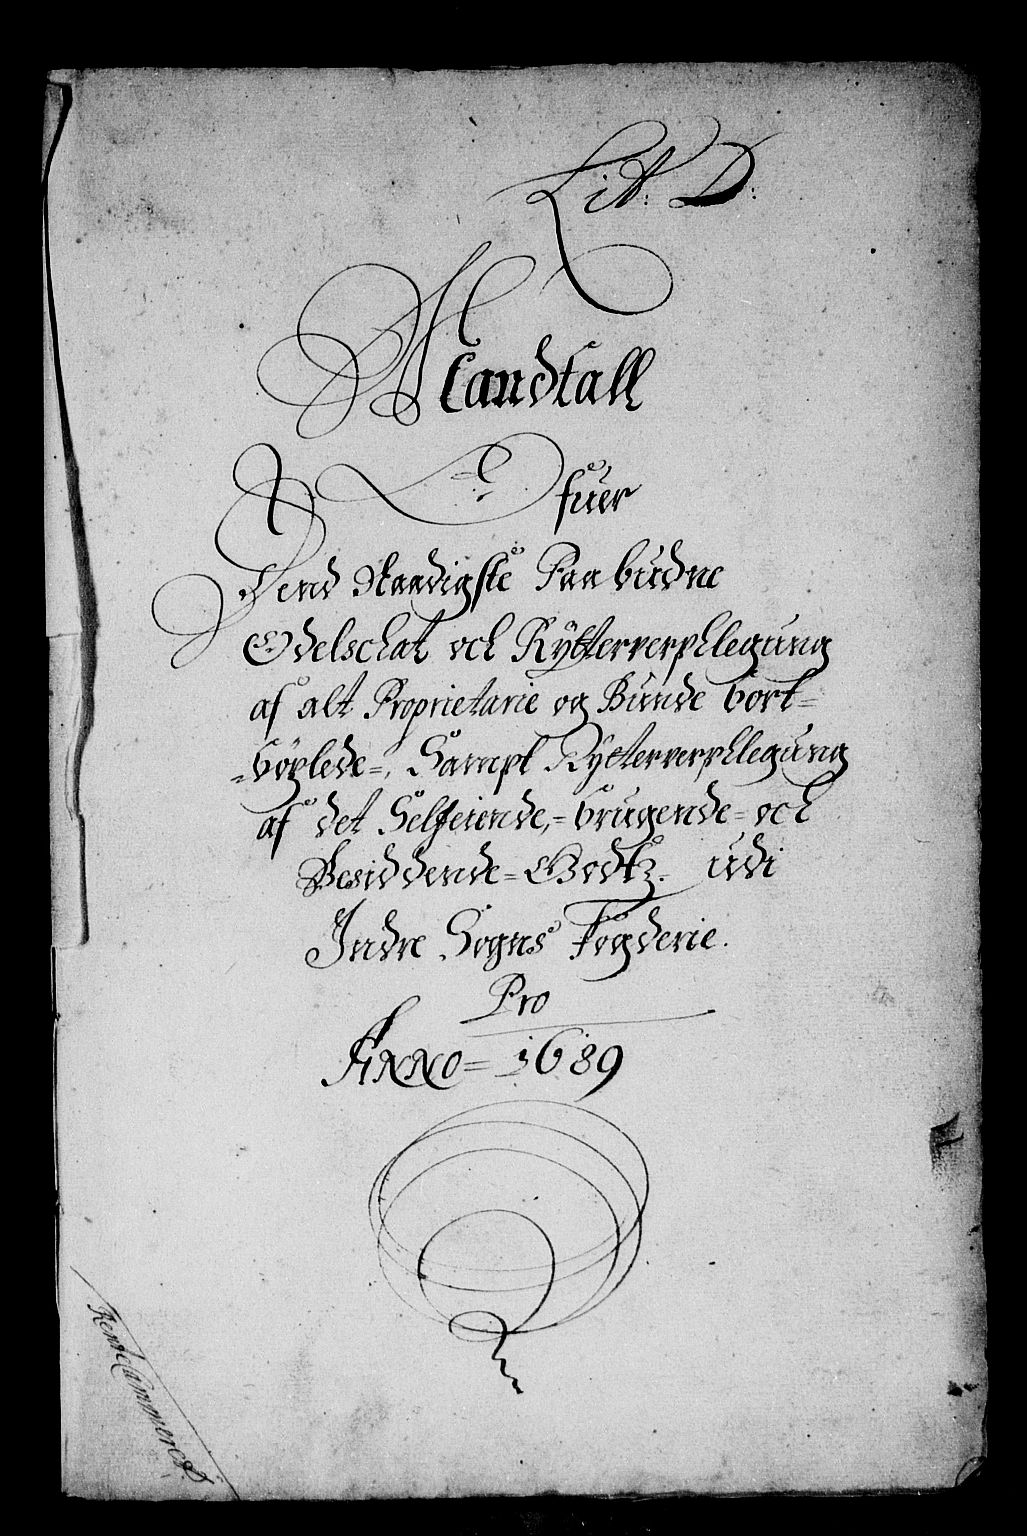 Litt: D:
Mandtall
Ofuer
Dend Naadigste Paabudne
Odelschat och Rÿtterverphlegung
af alt Proprietarie og Bunde bort=
=böxlede=, Sampt Rÿtterverphlegung
af det Selfeiende,= brugende= och
Besiddende= Godtz. udi
Indre Sogns Fogderie.
Pro
ANNO= 1689
RenteCammeret